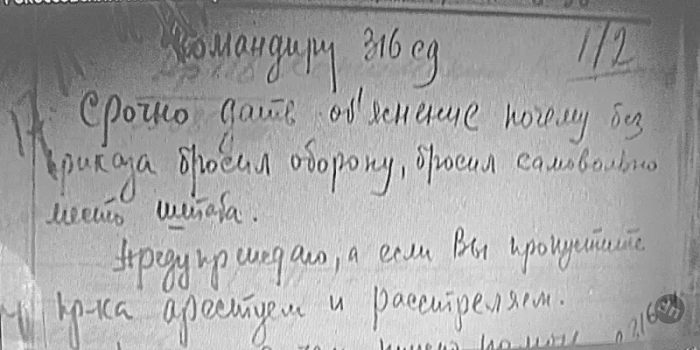 Командиру 316 сд 1/2
Срочно дайте об'яснение почему без
приказа бросил оборону, бросил самовольно
место штаба.
Предупреждаю, а если Вы пропустите
пр-ка арестуем и расстреляем.